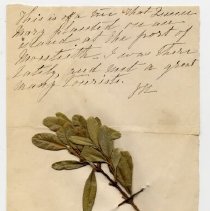 This is of a tree that Queen
Mary planted on an
island at the port of
Monteith. I was there
lately, and met a great
many tourists.
JH